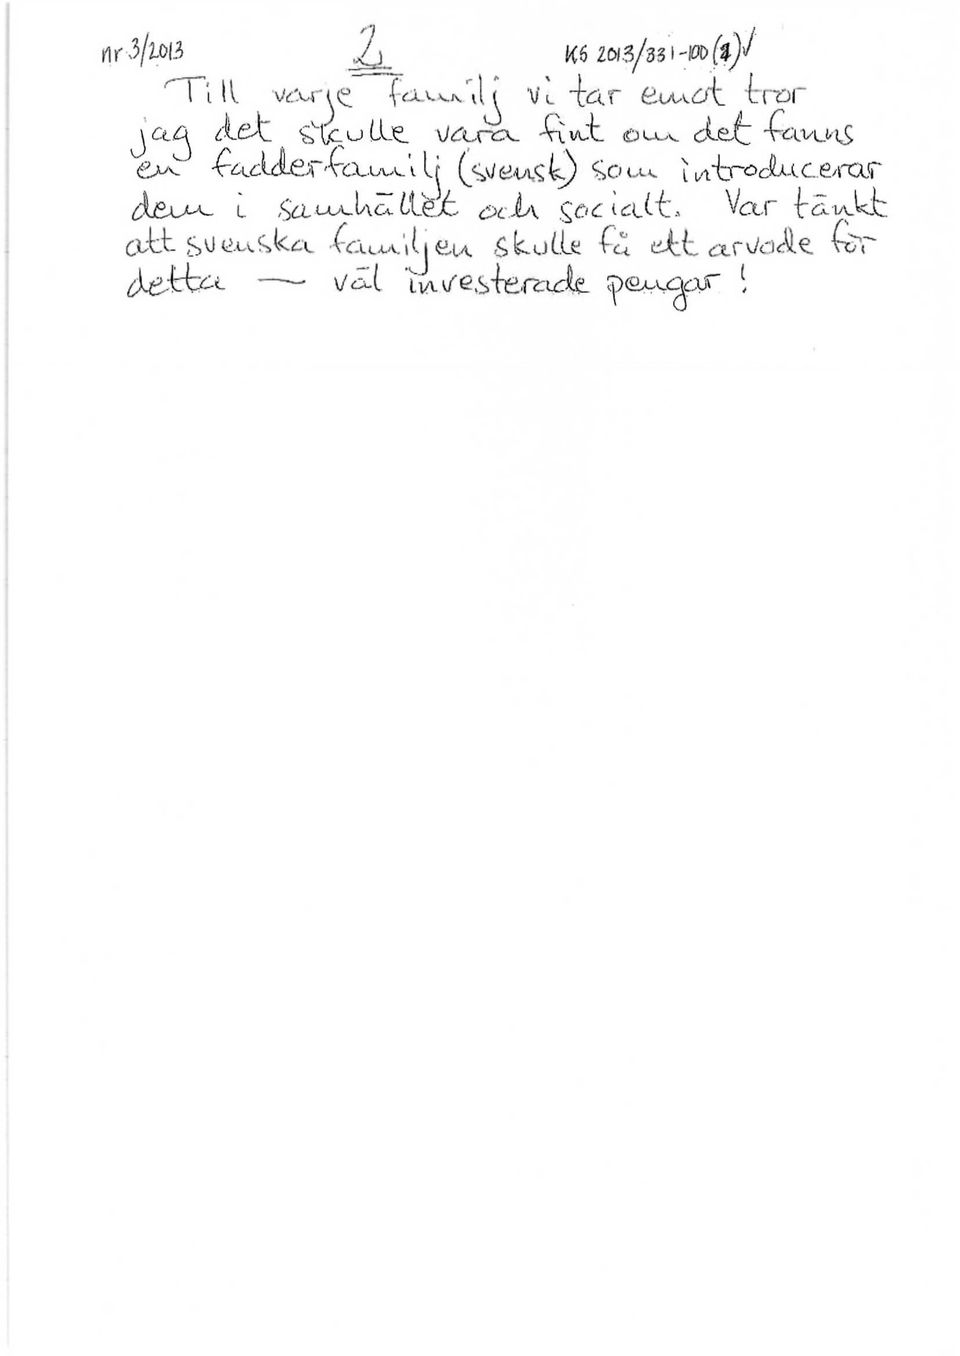 nr 3/2013
2
KS 2013/331-100 (1)√
Till varje familj vi tar emot tror
jag det skulle vara fint om det fanns
en fadderfamilj (svensk) som introducerar
dem i samhället och socialt. Var tänkt
att svenska familjen skulle få ett arvode för
detta — väl investerade pengar !